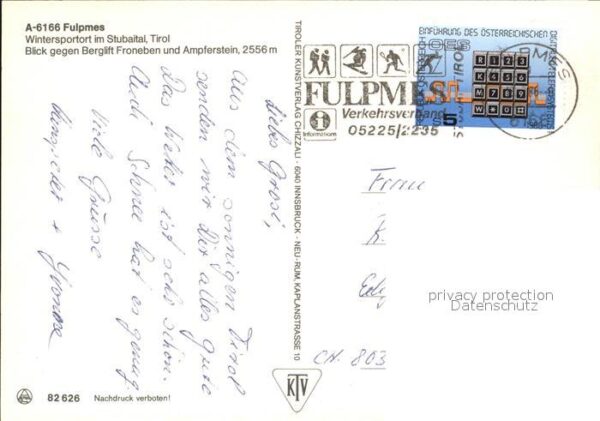 A-6166 Fulpmes
Wintersportort im Stubaital, Tirol
Blick gegen Berglift Froneben und Ampferstein, 2556 m
Liebs Grosi,
Aus dem sonnigen Tirol
senden wir Dir alles Gute
Das Wetter ist sehr schön.
Auch Schnee hat es genug.
Viele Grüsse
+ Yvonne
TIROLER KUNSTVERLAG CHIZZALI - 6040 INNSBRUCK - NEU-RUM, KAPLANSTRASSE 10
FULPMES
Verkehrsverband
Information
05225/2235
EINFÜHRUNG DES ÖSTERREICHISCHEN
R 1 2 3
K 4 5 6
M 7 8 9
W
5
TIROL
6166
Frau
K.
CH. 803
privacy protection
Datenschutz
KTV
82 626 Nachdruck verboten!